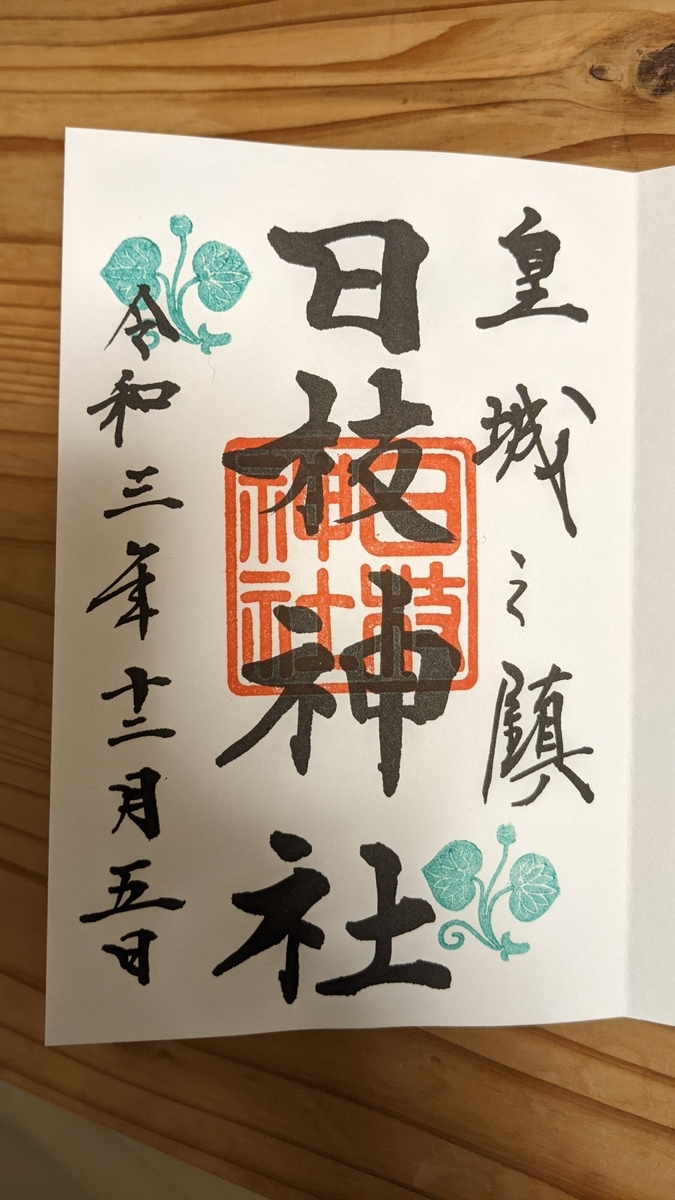 皇城之鎮
日枝神社
日枝
神社
令和三年十二月五日